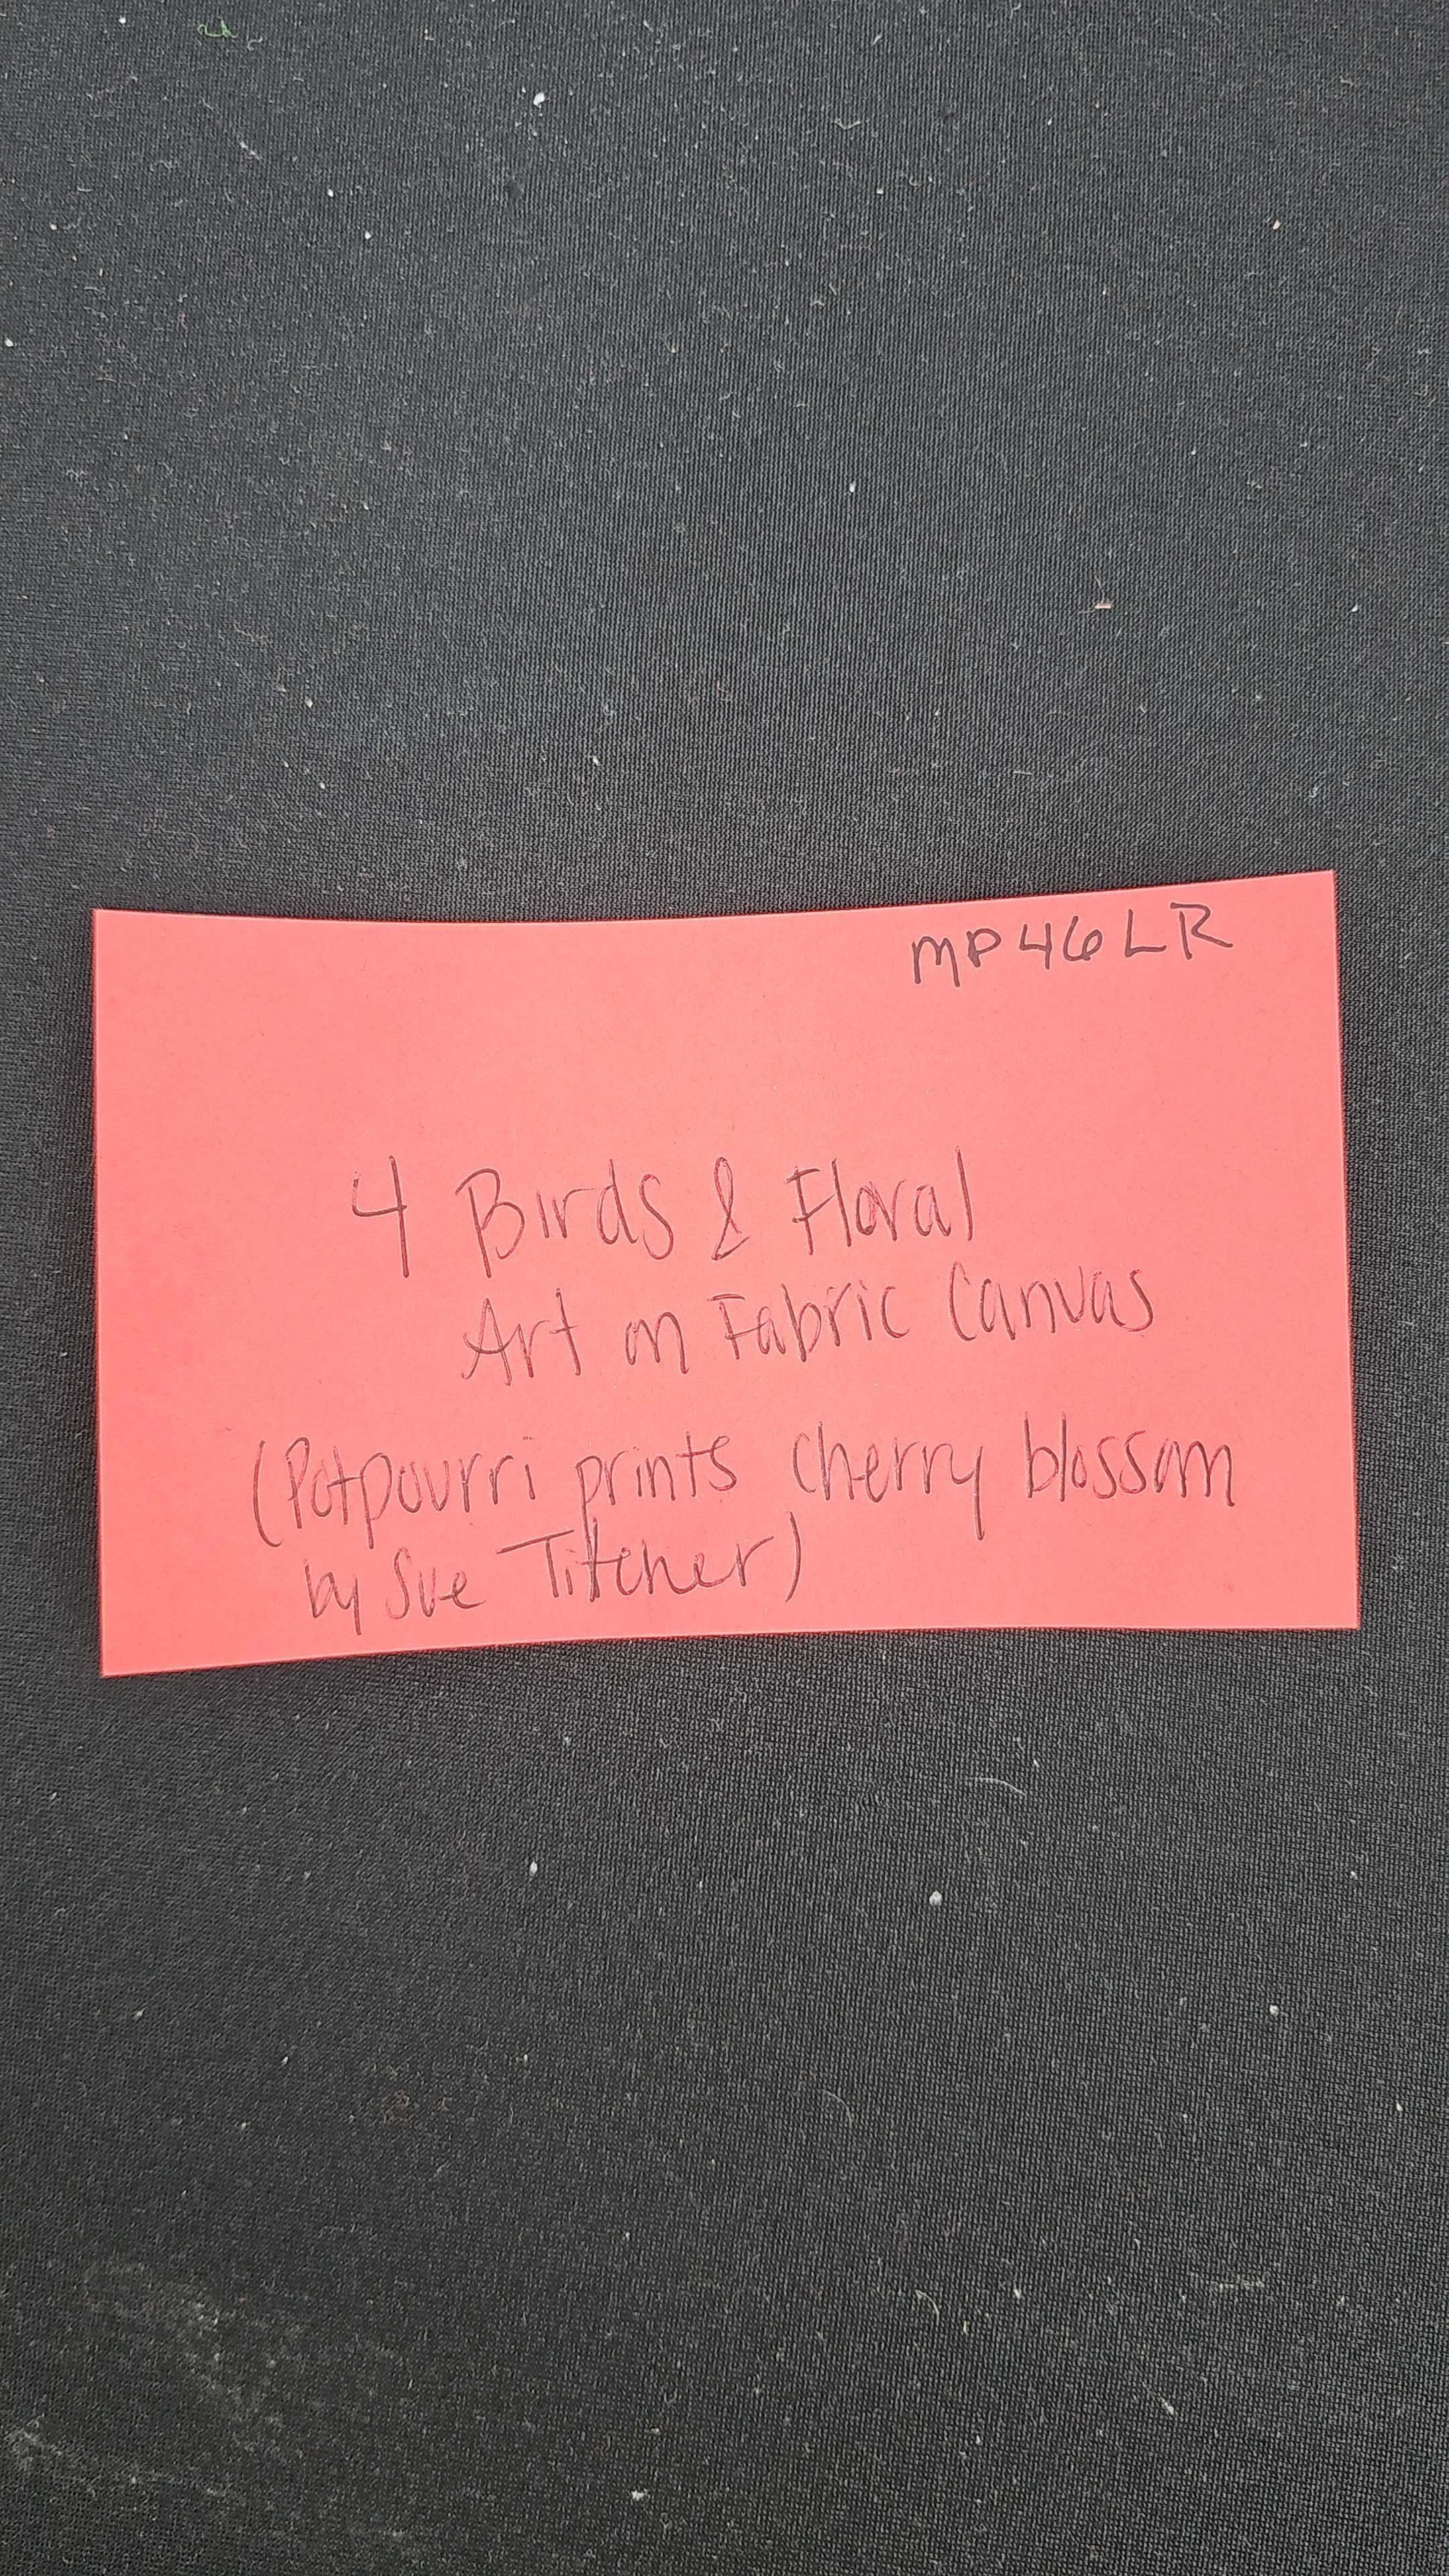 MP46LR
4 Birds & Floral
Art on Fabric Canvas
(Potpourri prints cherry blossom
by Sue Titcher)